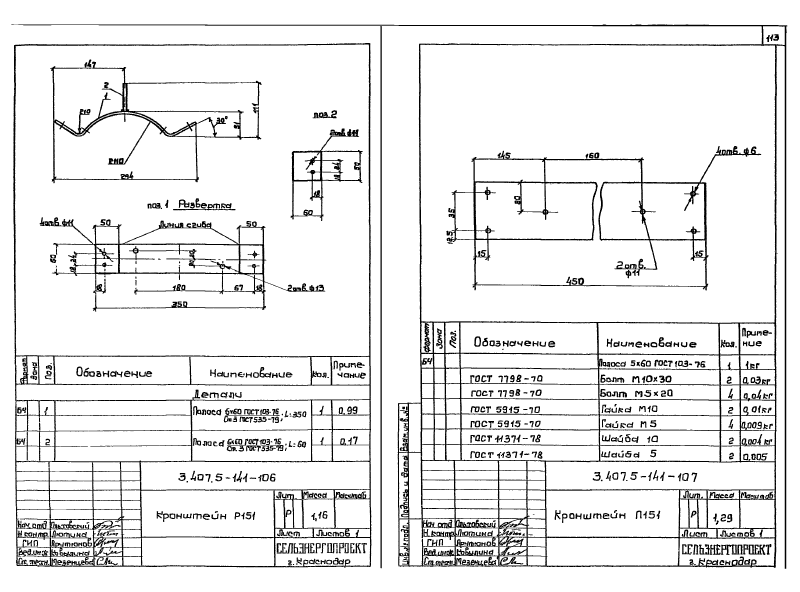 113
147
2
1
R10
30°
31
111
R110
294
поз.2
2отв.ф11
18
60
50
поз.1 Развертка
4отв.ф11
50
Линия сгиба
50
60
18
180
67
18
2отв.ф13
350
Формат
Зона
Поз.
Обозначение
Наименование
Кол.
Приме-
чание
Детали
БЧ 1 Полоса 6×60 ГОСТ 103-76 Ст.3 ГОСТ 535-79, L=350 1 0,99
БЧ 2 Полоса 6×60 ГОСТ 103-76 Ст.3 ГОСТ 535-79, L=60 1 0.17
3.407.5-141-106
Кронштейн Р151
Лит. Масса Масштаб
Р 1,16
Лист Листов 1
Нач.отд Ольховский
Н.контр. Лютина
ГИП Арутюнов
Вед.инж Ковылина
Ст.техн. Мезенцева
СЕЛЬЭНЕРГОПРОЕКТ
г.Краснодар
4отв. ф6
145
160
35
12.5
30
15
2отв.
ф11
15
450
Формат
Зона
Поз.
Обозначение
Наименование
Кол.
Приме-
ние
БЧ Полоса 5×60 ГОСТ 103-76 1 1кг
ГОСТ 7798-70 Болт М10×30 2 0,03кг
ГОСТ 7798-70 Болт М5×20 4 0,04кг
ГОСТ 5915-70 Гайка М10 2 0,01кг
ГОСТ 5915-70 Гайка М5 4 0,009кг
ГОСТ 11371-78 Шайба 10 2 0,004кг
ГОСТ 11371-78 Шайба 5 2 0,005
Инв.№подл. Подпись и дата Взам.инв.№
3.407.5-141-107
Кронштейн П151
Лит. Масса Масштаб
Р 1,29
Лист Листов 1
Нач.отд Ольховский
Н.контр. Лютина
ГИП Арутюнов
Вед.инж. Ковылина
Ст.техн. Мезенцева
СЕЛЬЭНЕРГОПРОЕКТ
г.Краснодар